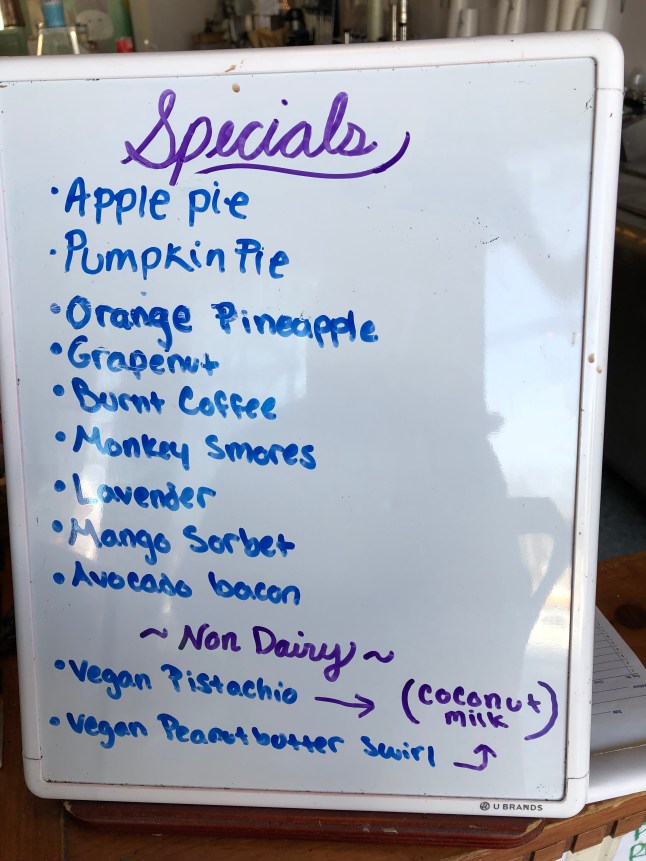 Specials
• Apple pie
• Pumpkin Pie
• Orange Pineapple
• Grapenut
• Burnt Coffee
• Monkey Smores
• Lavender
• Mango Sorbet
• Avocado bacon
~ Non Dairy ~
• Vegan Pistachio → (coconut milk)
• Vegan Peanutbutter Swirl ↑
U BRANDS